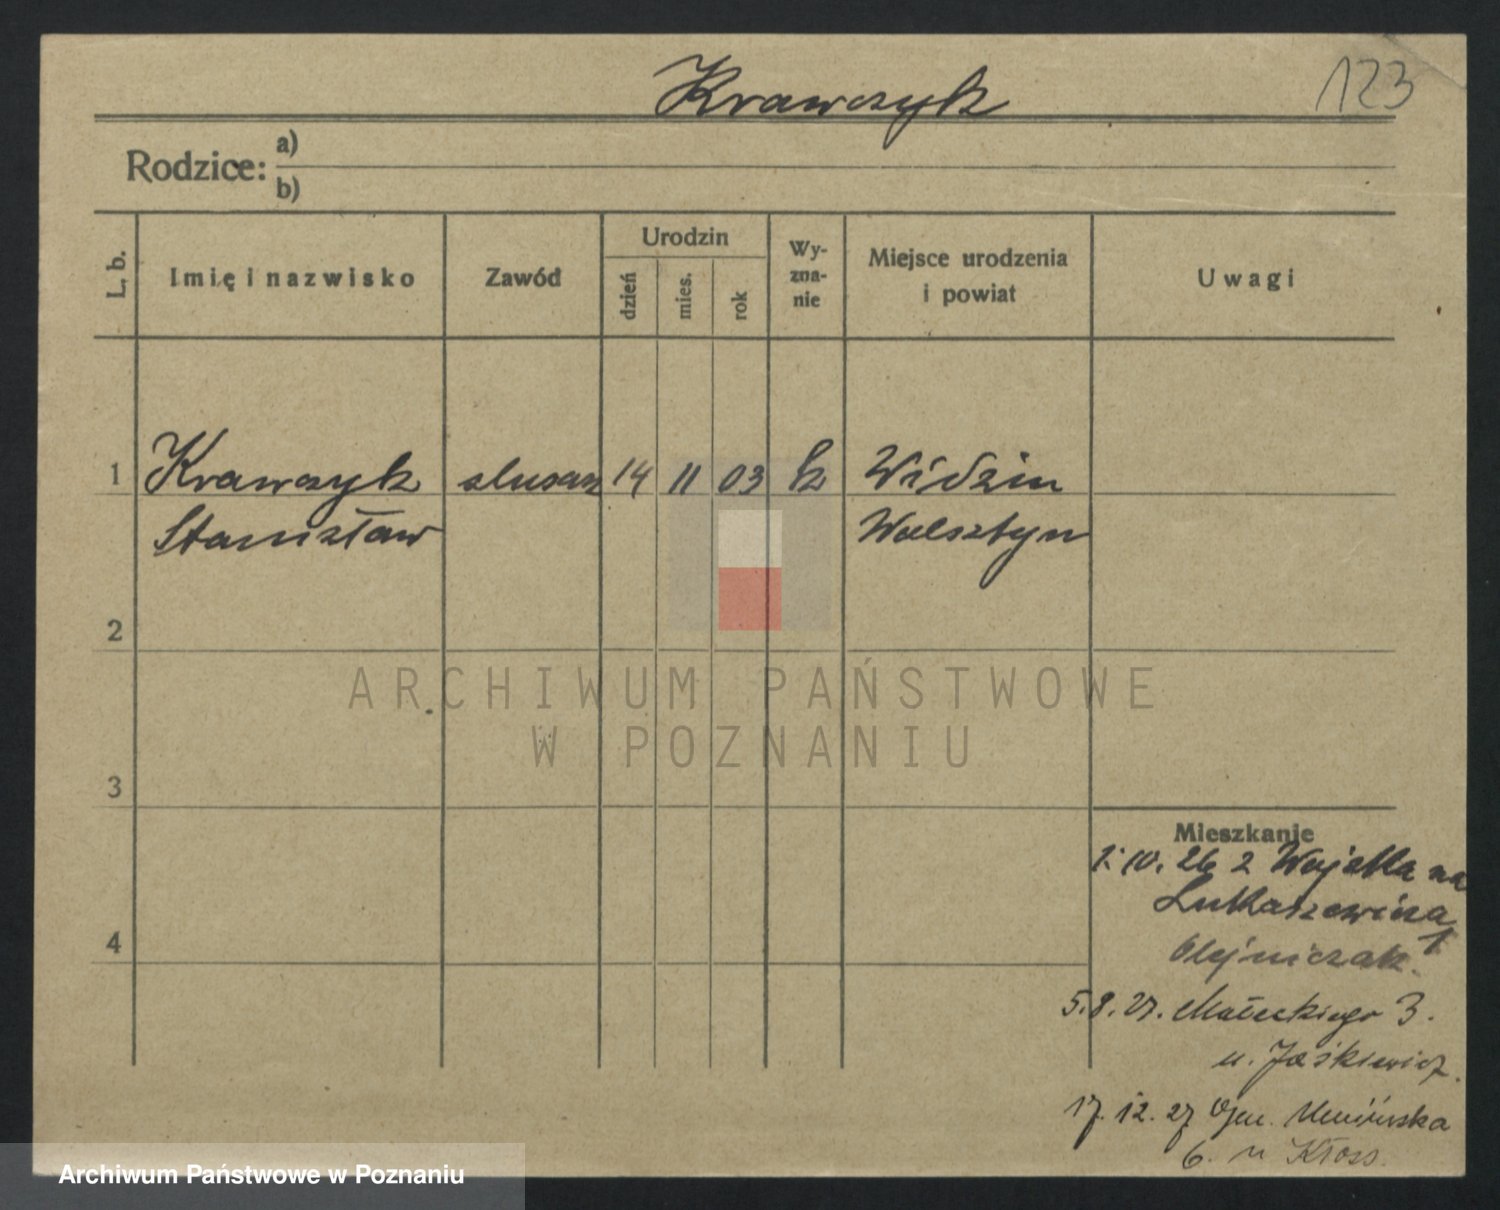 Krawczyk
123
Rodzice: a)
b)
L. b.
Imię i nazwisko
Zawód
Urodzin
dzień
mies.
rok
Wy-
zna-
nie
Miejsce urodzenia
i powiat
Uwagi
1 Krawczyk ślusarz 14 11 03 Widzin
Stanisław Wolsztyn
2
3
4
Mieszkanie
1.10.26 z na
Łukaszewicza
1
Olejniczak.
5.8.27. Małeckiego 3.
u. Jaśkiewicz.
17.12.27 Gen. Umińska
6. u Kłoss.
ARCHIWUM PAŃSTWOWE
W POZNANIU
Archiwum Państwowe w Poznaniu